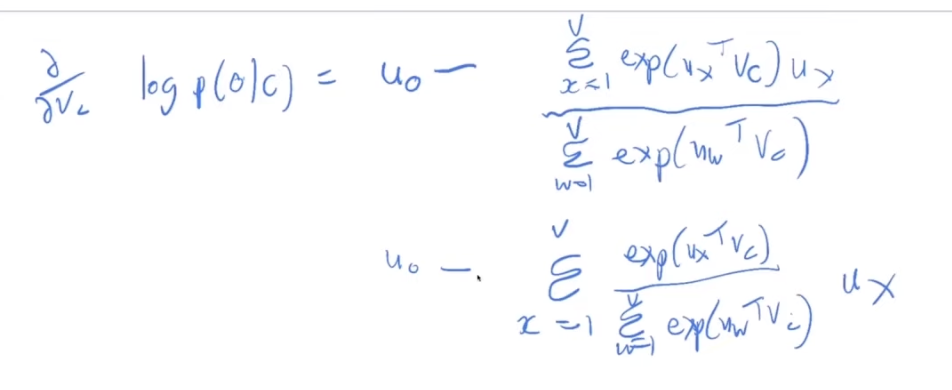 ∂/∂v_c log p(o|c) = u_o − Σ_{x=1}^{V} exp(u_x^T v_c) u_x / Σ_{w=1}^{V} exp(u_w^T v_c)
u_o − Σ_{x=1}^{V} exp(u_x^T v_c) / Σ_{w=1}^{V} exp(u_w^T v_c) u_x